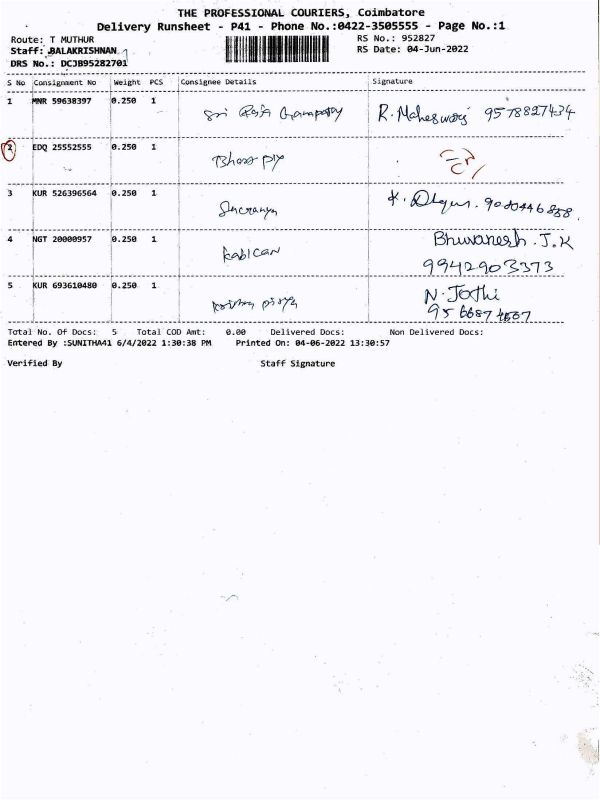 THE PROFESSIONAL COURIERS, Coimbatore
Delivery Runsheet - P41 - Phone No.:0422-3505555 - Page No.:1
Route: T MUTHUR RS No.: 952827
Staff: BALAKRISHNAN RS Date: 04-Jun-2022
DRS No.: DCJB95282701
S No Consignment No Weight PCS Consignee Details Signature
1 MNR 59638397 0.250 1 Sri Raja Ganapathy R. Maheswari 9578827434
2 EDQ 25552555 0.250 1
3 KUR 526396564 0.250 1 K. 9080446888
4 NGT 20000957 0.250 1 Kabican Bhuvanesh. J.K
9942903373
5 KUR 693610480 0.250 1 N. Jothi
Total No. Of Docs: 5 Total COD Amt: 0.00 Delivered Docs: Non Delivered Docs:
Entered By :SUNITHA41 6/4/2022 1:30:38 PM Printed On: 04-06-2022 13:30:57
Verified By Staff Signature